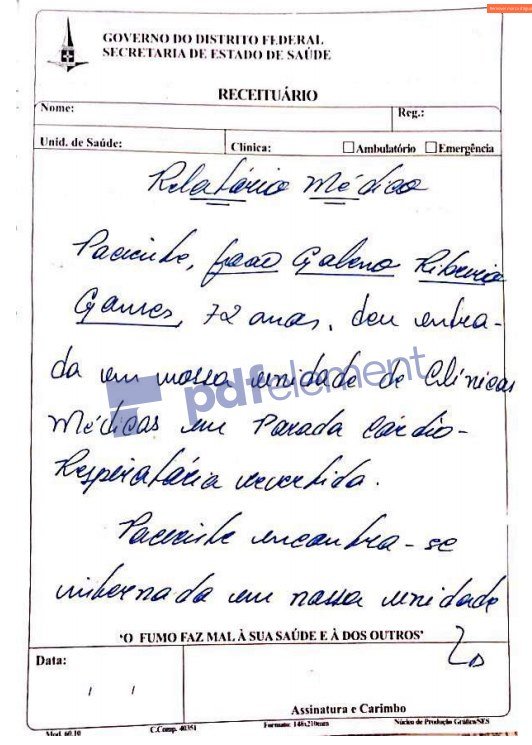 GOVERNO DO DISTRITO FEDERAL
SECRETARIA DE ESTADO DE SAÚDE
RECEITUÁRIO
Nome:
Reg.:
Unid. de Saúde:
Clínica:
Ambulatório
Emergência
Relatório Médico
Paciente, João Galeno Ribeiro
Gomes, 72 anos, deu entra-
da em nossa unidade de Clínicas
Médicas em Parada Cárdio-
Respiratória revertida.
Paciente encontra-se
internada em nossa unidade
pdfelement
'O FUMO FAZ MAL À SUA SAÚDE E À DOS OUTROS'
Data:
/ /
Assinatura e Carimbo
Mod. 60.10
C.Comp. 40351
Formato: 148x210mm
Núcleo de Produção Gráfica/SES